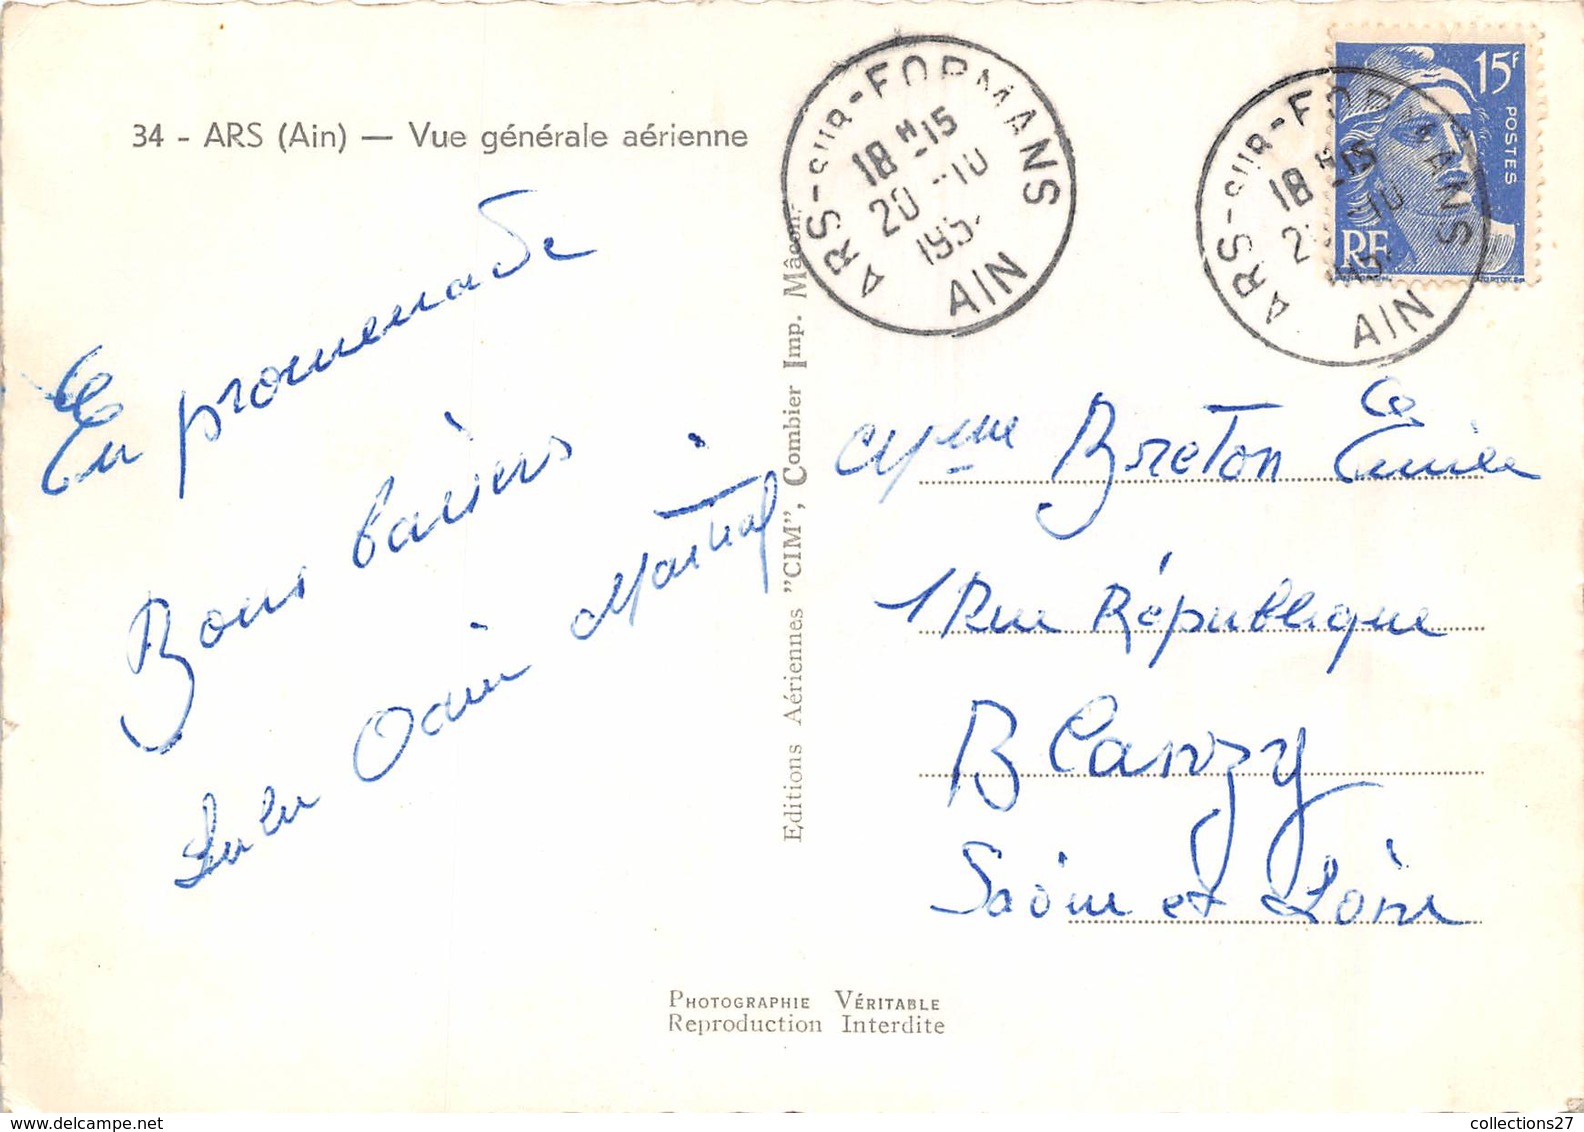 34 - ARS (Ain) — Vue générale aérienne
En promenade
Bons baisers
Lulu Odin Martial
Editions Aériennes "CIM", Combier Imp. Mâcon
ARS-SUR-FORMANS
18H-15
20 -10
195
AIN
ARS-SUR-FORMANS
18H-15
2 -10
195
AIN
15F
POSTES
RF
Mme Breton Emilie
1 Rue République
Blanzy
Saône et Loire
PHOTOGRAPHIE VÉRITABLE
Reproduction Interdite
collections27